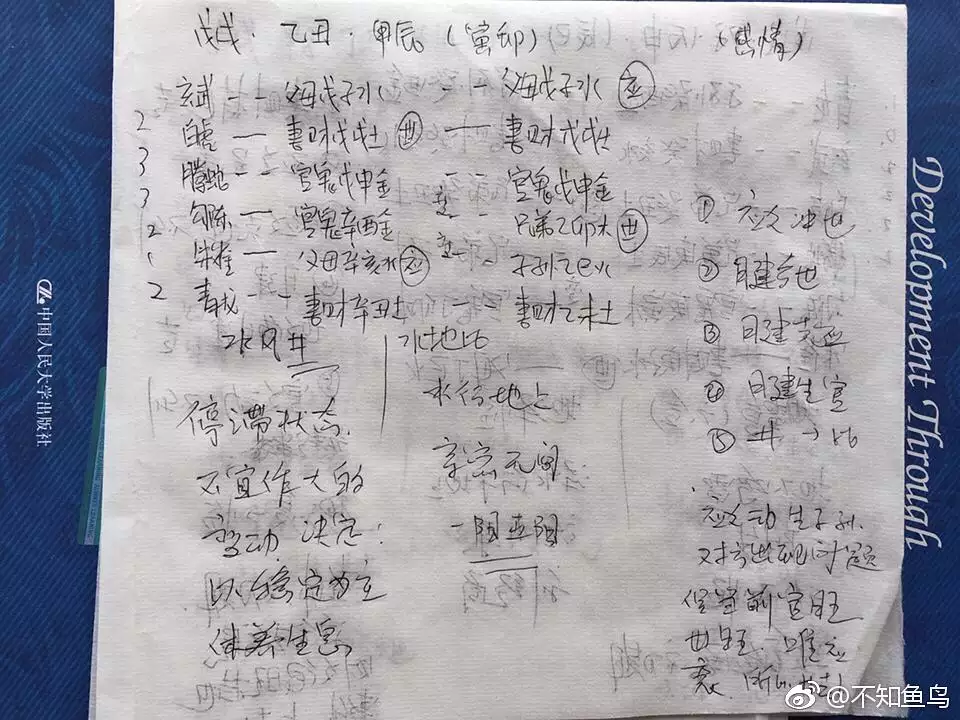 戊戌·乙丑·甲辰(寅卯) (感情)
玄武 -- 父母戊子水 -- 父母戊子水 应
2 白虎 — 妻财戊戌土 世 — 妻财戊戌土
3 腾蛇 -- 官鬼戊申金 -- 官鬼戊申金
3 勾陈 — 官鬼辛酉金 -- 兄弟乙卯木 世
2 朱雀 — 父母辛亥水 应 -- 子孙乙巳火
2 青龙 -- 妻财辛丑土 妻财乙未土
水风井 水地比
停滞状态
不宜作大的
变动 决定:
以稳定为主
休养生息
水行地上
亲密无间
① 应爻冲世
② 日建合世
③ 日建
④ 日建生官
⑤ 井→比
应动生子孙
对方出现问题
官旺
世旺. 唯应
衰.
中国人民大学出版社
Development Through
@不知鱼鸟